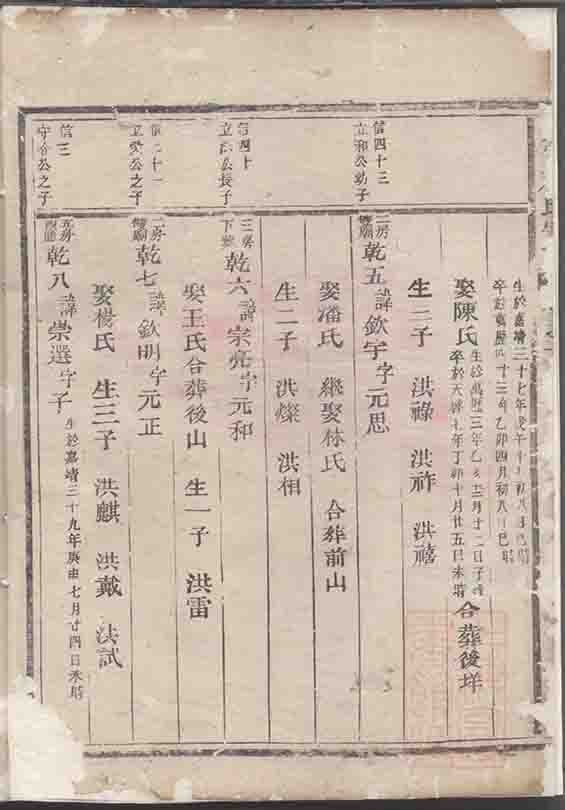 生於嘉靖三十七年戊午十月初八日巳時
卒於萬曆四十三年乙卯四月初八日巳時
娶陳氏
生於萬曆三年乙亥三月十二日子時
卒於天啟七年丁卯十月廿五日未時
合葬後垟
生三子 洪祿 洪祚 洪禧
信四十三
立和公幼子
二房
乾五諱欽宇字元思
娶潘氏 繼娶林氏 合葬前山
生二子 洪燦 洪相
信四十
公長子
三房
下
乾六諱宗亮字元和
娶王氏合葬後山 生一子 洪雷
信二十一
公之子
二房
乾七諱欽明字元正
娶楊氏 生三子 洪麒 洪戴 洪試
信三
守公之子
五房
乾八諱崇選字子
生於嘉靖三十九年庚申七月廿四日未時